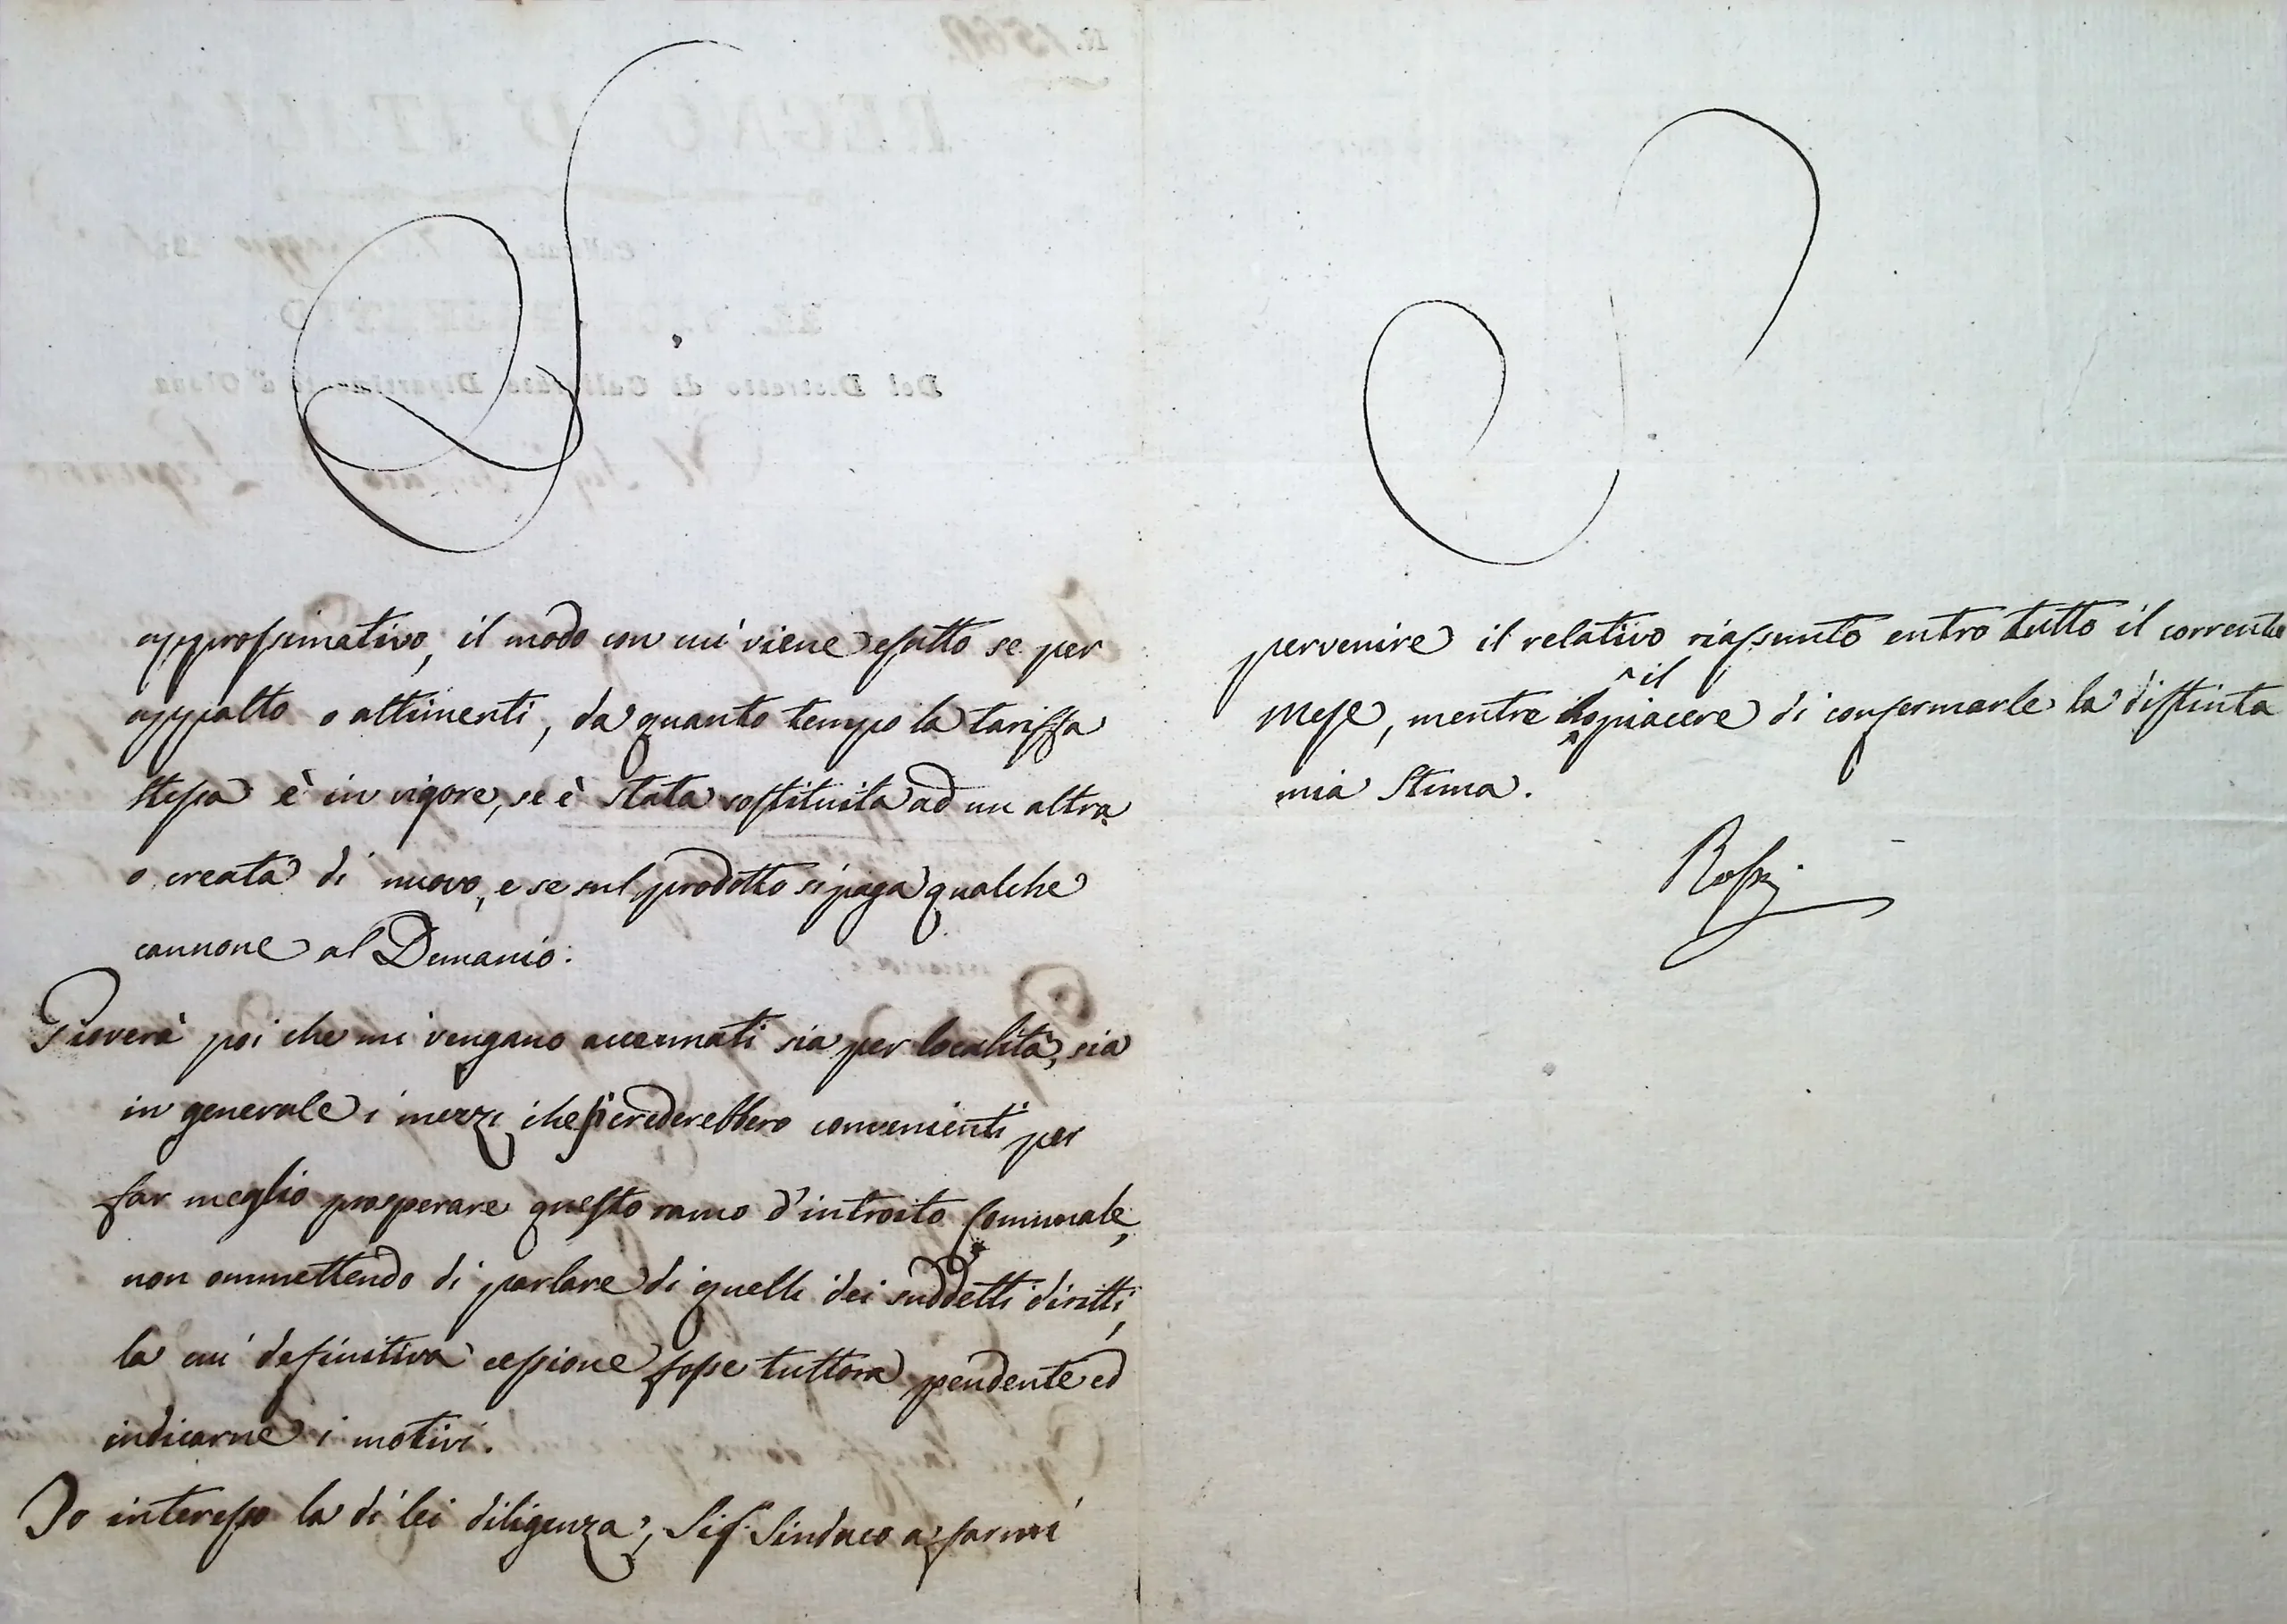 approssimativo, il modo con cui viene esatto se per
appalto o altrimenti, da quanto tempo la tariffa
stessa è in vigore, se è stata sostituita ad un altra
o creata di nuovo, e se sul prodotto si paga qualche
cannone al Demanio.
Gioverà poi che mi vengano accennati sia per località, sia
in generale i mezzi che si crederebbero convenienti per
far meglio prosperare questo ramo d'introito Comunale,
non ommettendo di parlare di quelli dei suddetti diritti,
la cui definitiva cessione fosse tuttora pendente ed
indicarne i motivi.
Io interesso la di lei diligenza, Sig.r Sindaco a farmi
pervenire il relativo riassunto entro tutto il corrente
mese, mentre ho il piacere di confermarle la distinta
mia stima.
Rossi